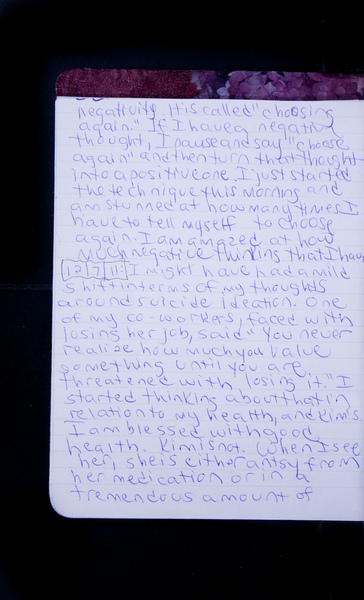 negativity. It is called "choosing
again." If I have a negative
thought, I pause and say "choose
again" and then turn that thought
into a positive one. I just started
the technique this morning and
am stunned at how many times I
have to tell myself to choose
again. I am amazed at how
much negative thinking that I have
12 7 11: I might have had a mild
shift in terms of my thoughts
around suicide ideation. One
of my co-workers, faced with
losing her job, said "You never
realize how much you value
something until you are
threatened with losing it." I
started thinking about that in
relation to my health, and Kim's.
I am blessed with good
health. Kim is not. When I see
her, she is either antsy from
her medication or in a
tremendous amount of